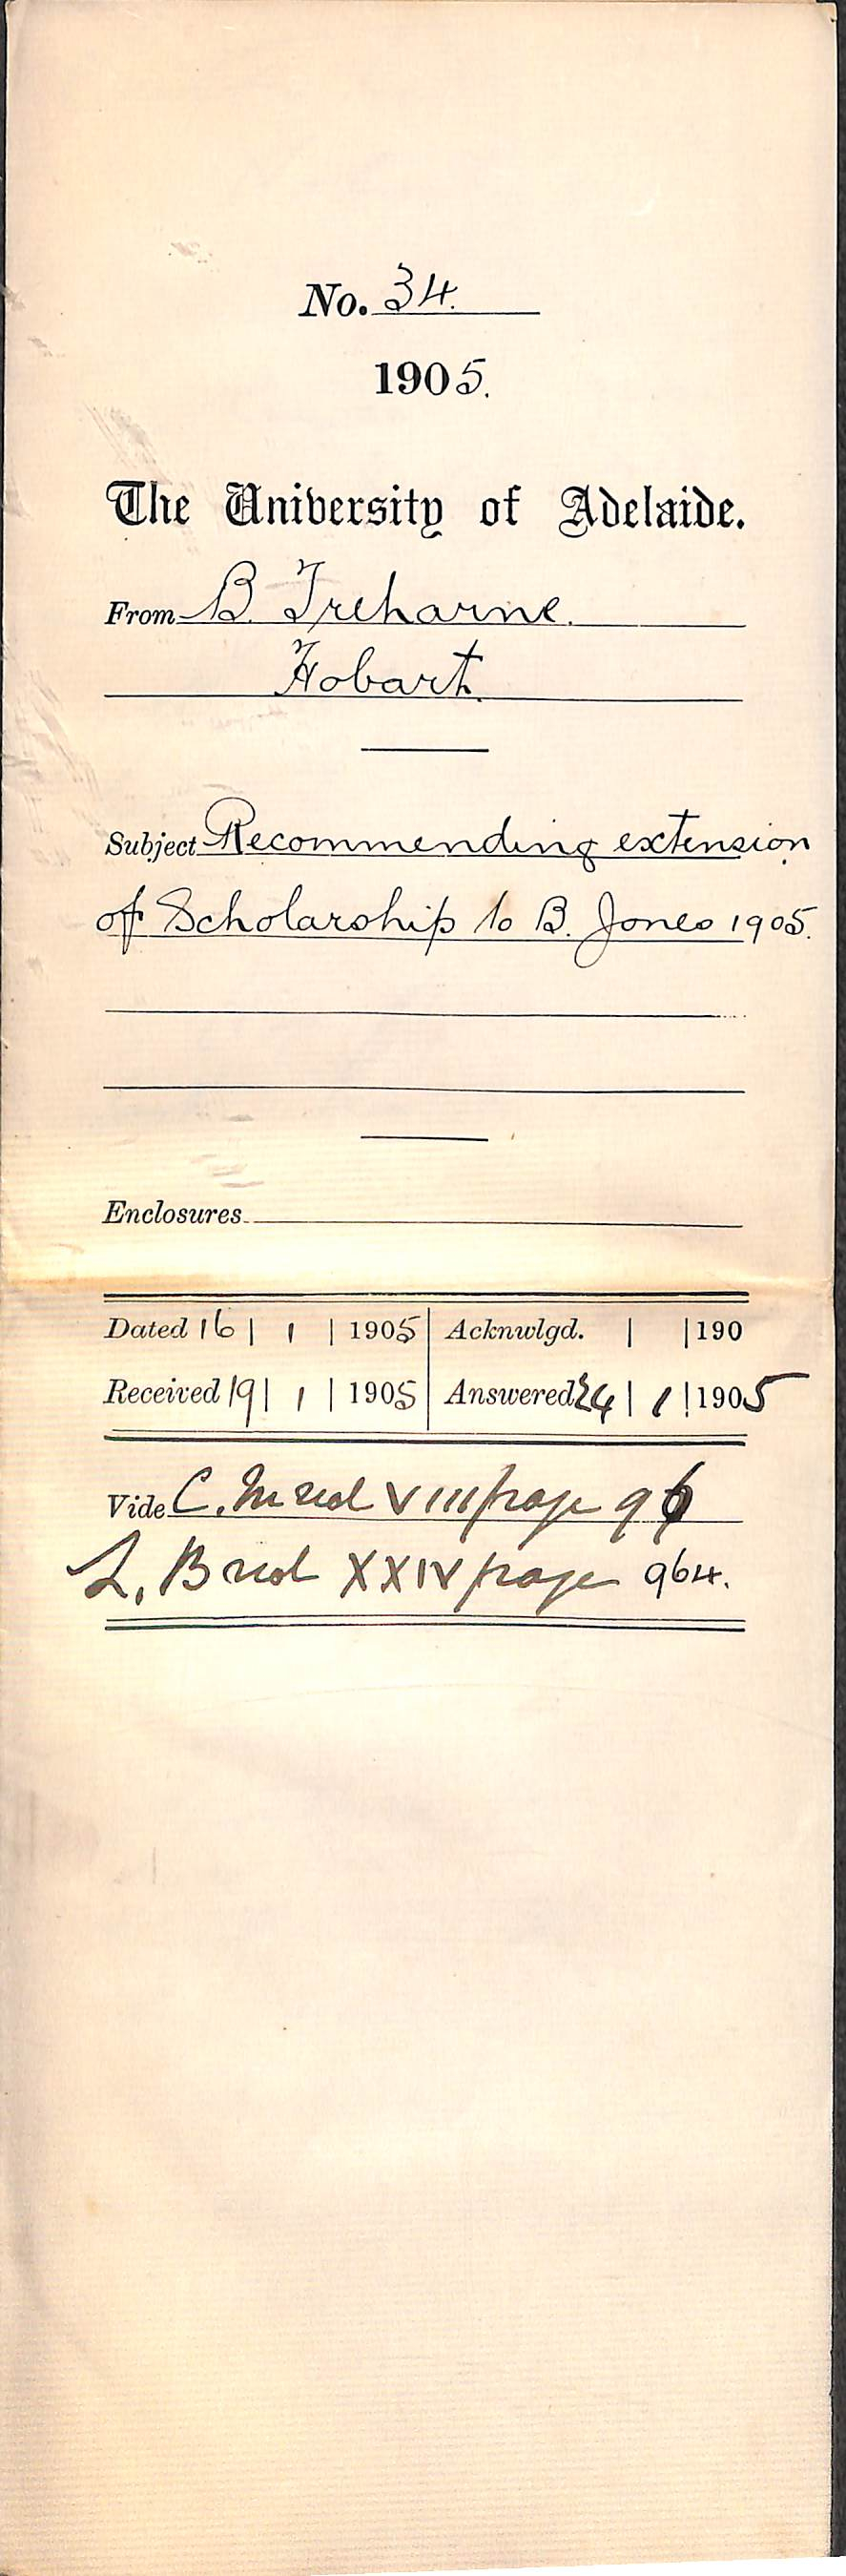 No. 34.
1905.
The University of Adelaide.
From B. Treharne.
Hobart.
Subject Recommending extension
of Scholarship to B. Jones 1905.
Enclosures
Dated 16 | 1 | 1905 | Acknwlgd. | | 190
Received 19 | 1 | 1905 | Answered 24 | 1 | 1905
Vide C. M vol VIII page 96
L. B vol XXIV page 964.